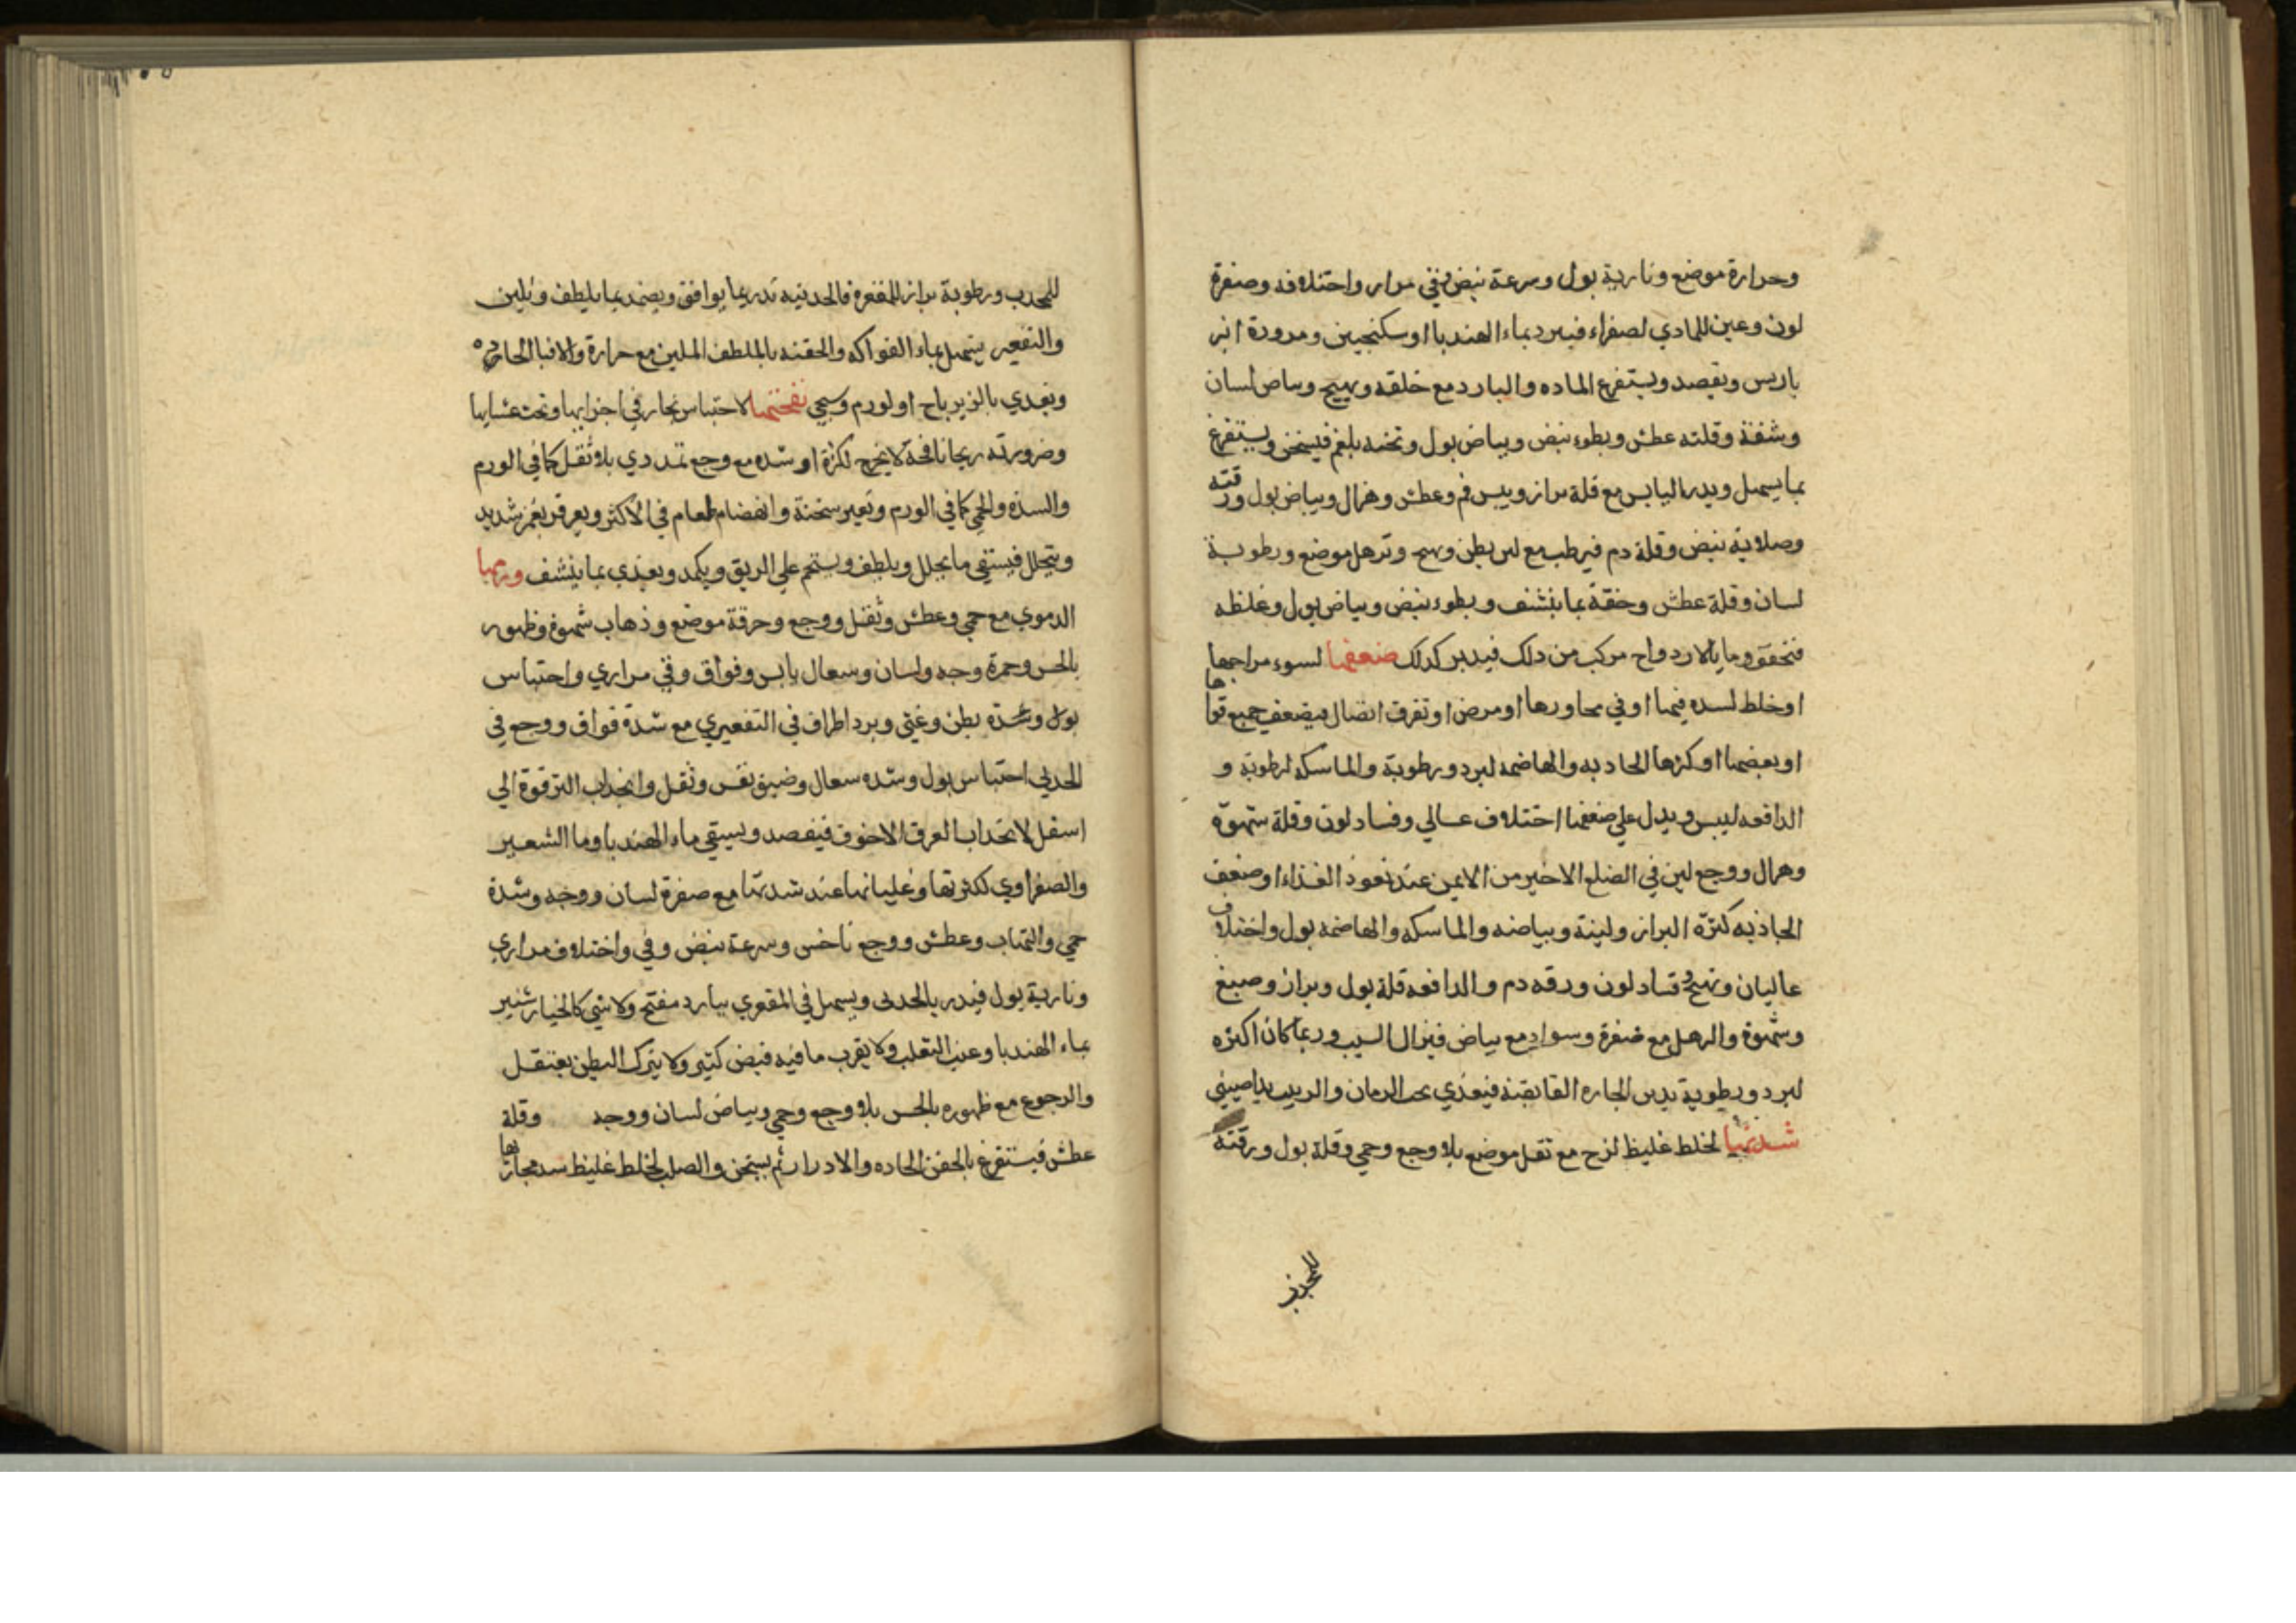 وحرارة موضع ونارية بول وسرعة نبض وفي مرار واختلافه وصفرة
لون وعين للمادي لصفراء فيبرد بماء الهندبا او سكنجبين ومدورة انبر
باريس ويفصد ويستفرغ الماده والبارد مع خلقه وتهيج وبياض لسان
وشفة وقلته عطش وبطوء نبض وبياض بول وتخنه بلغم فيسخن ويستفرغ
بما يسهل ويدر اليابس مع قلة براز ويبس فم وعطش وهزال وبياض بول ورقته
وصلابة نبض وقلة دم فيرطب مع لين بطن وتهيج وترهل موضع ورطوبة
لسان وقلة عطش وخفة بما ينشف وبطوء نبض وبياض بول وغلظه
فتخفف وما بالاردواح مركب من ذلك فيدبر كذلك ضعفها لسوء مزاجها
او خلط لسده فيها او في مجاورها او مرض او تفرق اتصال فيضعف جميع قواها
او بعضها او كثرها الجاذبه والهاضمه لبرد ورطوبة والماسكه لرطوبة و
الدافعه ليبس ويدل علي ضعفها اختلاف غسالي وفساد لون وقلة شهوة
وهزال ووجع لين في الضلع الاخير من الايمن عند نفوذ الغذاء او ضعف
الجاذبه كثرة البراز ولينة وبياضه والماسكه والهاضمه بول واختلاف
غاليان وتهيج وفساد لون ورقه دم والدافعه قلة بول وبراز وصبغ
وشهوة والرهل مع صفرة وسواد مع بياض فيزال السبب وربما كان اكثره
لبرد ورطوبة يدبر الحاره القابضة فيغذي بحب الرمان والزبيب بداصيني
شدتها لخلط غليظ لزج مع ثقل موضع بلا وجع وحمي وقلة بول ورقته
للمحدب
للمحدب ورطوبة براز للمقعرة فالحدبيه تدر بما يوافق ويضمد بما يلطف ويلين
والتقعير يسهل بماء الفواكه والحقنه بالملطف الملين مع حرارة والا فبالحاره
ويغذي بالزيرباج او لورم وسيجي نفختها لاحتباس بخار في اجزايها وتحت غشايها
وضرورته ريحا نافخة لا يخرج لكثرة او شده مع وجع تمددي بلا ثقل كما في الورم
والسده والحمي كما في الورم وتغير سخنة وانهضام طعام في الاكثر ويعرقر بغمز شديد
ويتحلل فيستقي ما يحلل ويلطف ويستحم علي الريق ويكمد ويغذي بما ينشف ورمها
الدموي مع حمي وعطش وثقل ووجع وحرقة موضع وذهاب شهوة وظهور
بالحس وحمرة وجه ولسان وسعال يابس وفواق وقي مراري واحتباس
بول وشدة بطن وغثي وبرد اطراف في التقعيري مع شدة فواق ووجع في
الحدبي احتباس بول وشده سعال وضيق نفس وثقل وانجذاب الترقوة الي
اسفل لانجذاب العرق الاجوف فيفصد ويسقي ماء الهندبا وما الشعير
والصفراوي لكثرتها وغليانها عند شدتها مع صفرة لسان ووجه وشدة
حمي والتهاب وعطش ووجع ناخس وسرعة نبض وقي واختلاف مراري
ونارية بول فيدر بالحدبي ويسهل في المقعري ببارد مفتح ولا شي كالخيار شنبر
بماء الهندبا وعنب الثعلب ولا يقرب ما فيه قبض كثير ولا يترك البطن يعتقل
والرجوع مع ظهوره بالحس بلا وجع وحمي وبياض لسان ووجه وقلة
عطش فيستفرغ بالحقن الحاده والادرار ثم يسخن والصلب لخلط غليظ سد مجاريها